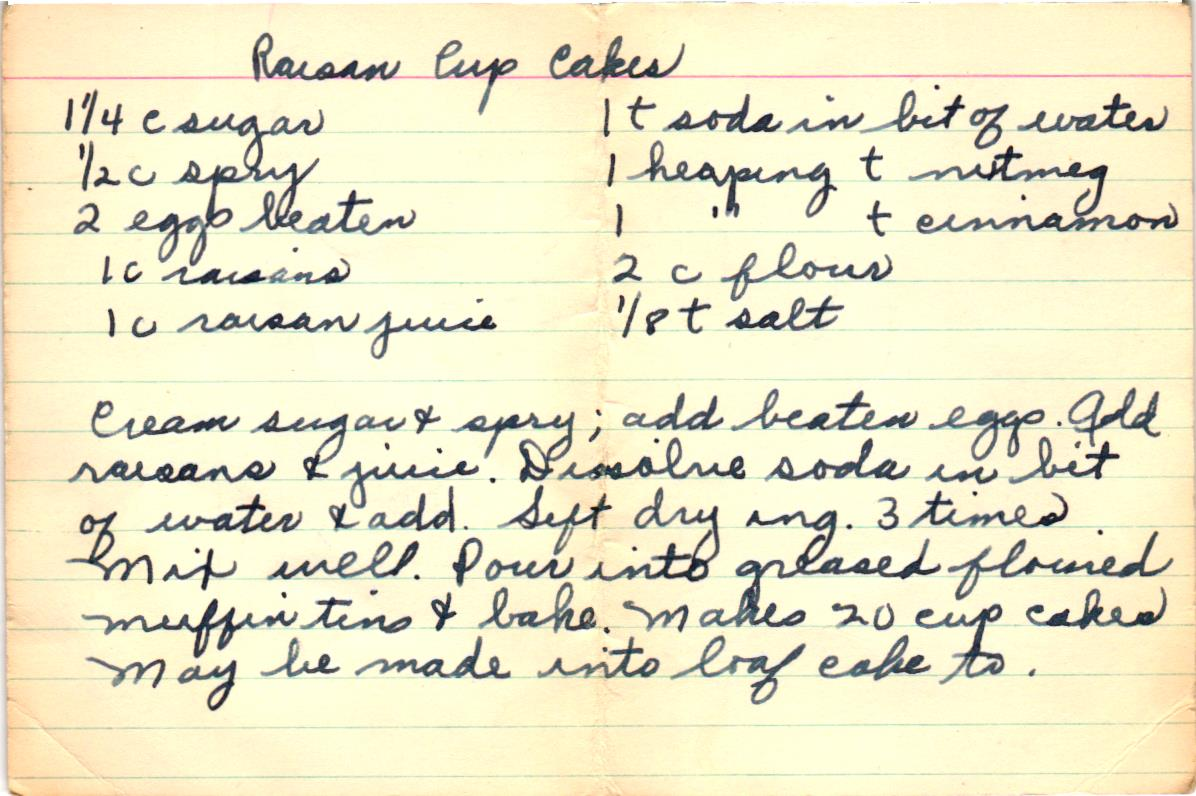 Raisan Cup Cakes
1 1/4 c sugar
1/2 c spry
2 eggs beaten
1 c raisans
1 c raisan juice
1 t soda in bit of water
1 heaping t nutmeg
1 " t cinnamon
2 c flour
1/8 t salt
Cream sugar & spry; add beaten eggs. Add
raisans & juice. Dissolve soda in bit
of water & add. Sift dry ing. 3 times
Mix well. Pour into greased floured
muffin tins & bake. Makes 20 cup cakes
May be made into loaf cake to.